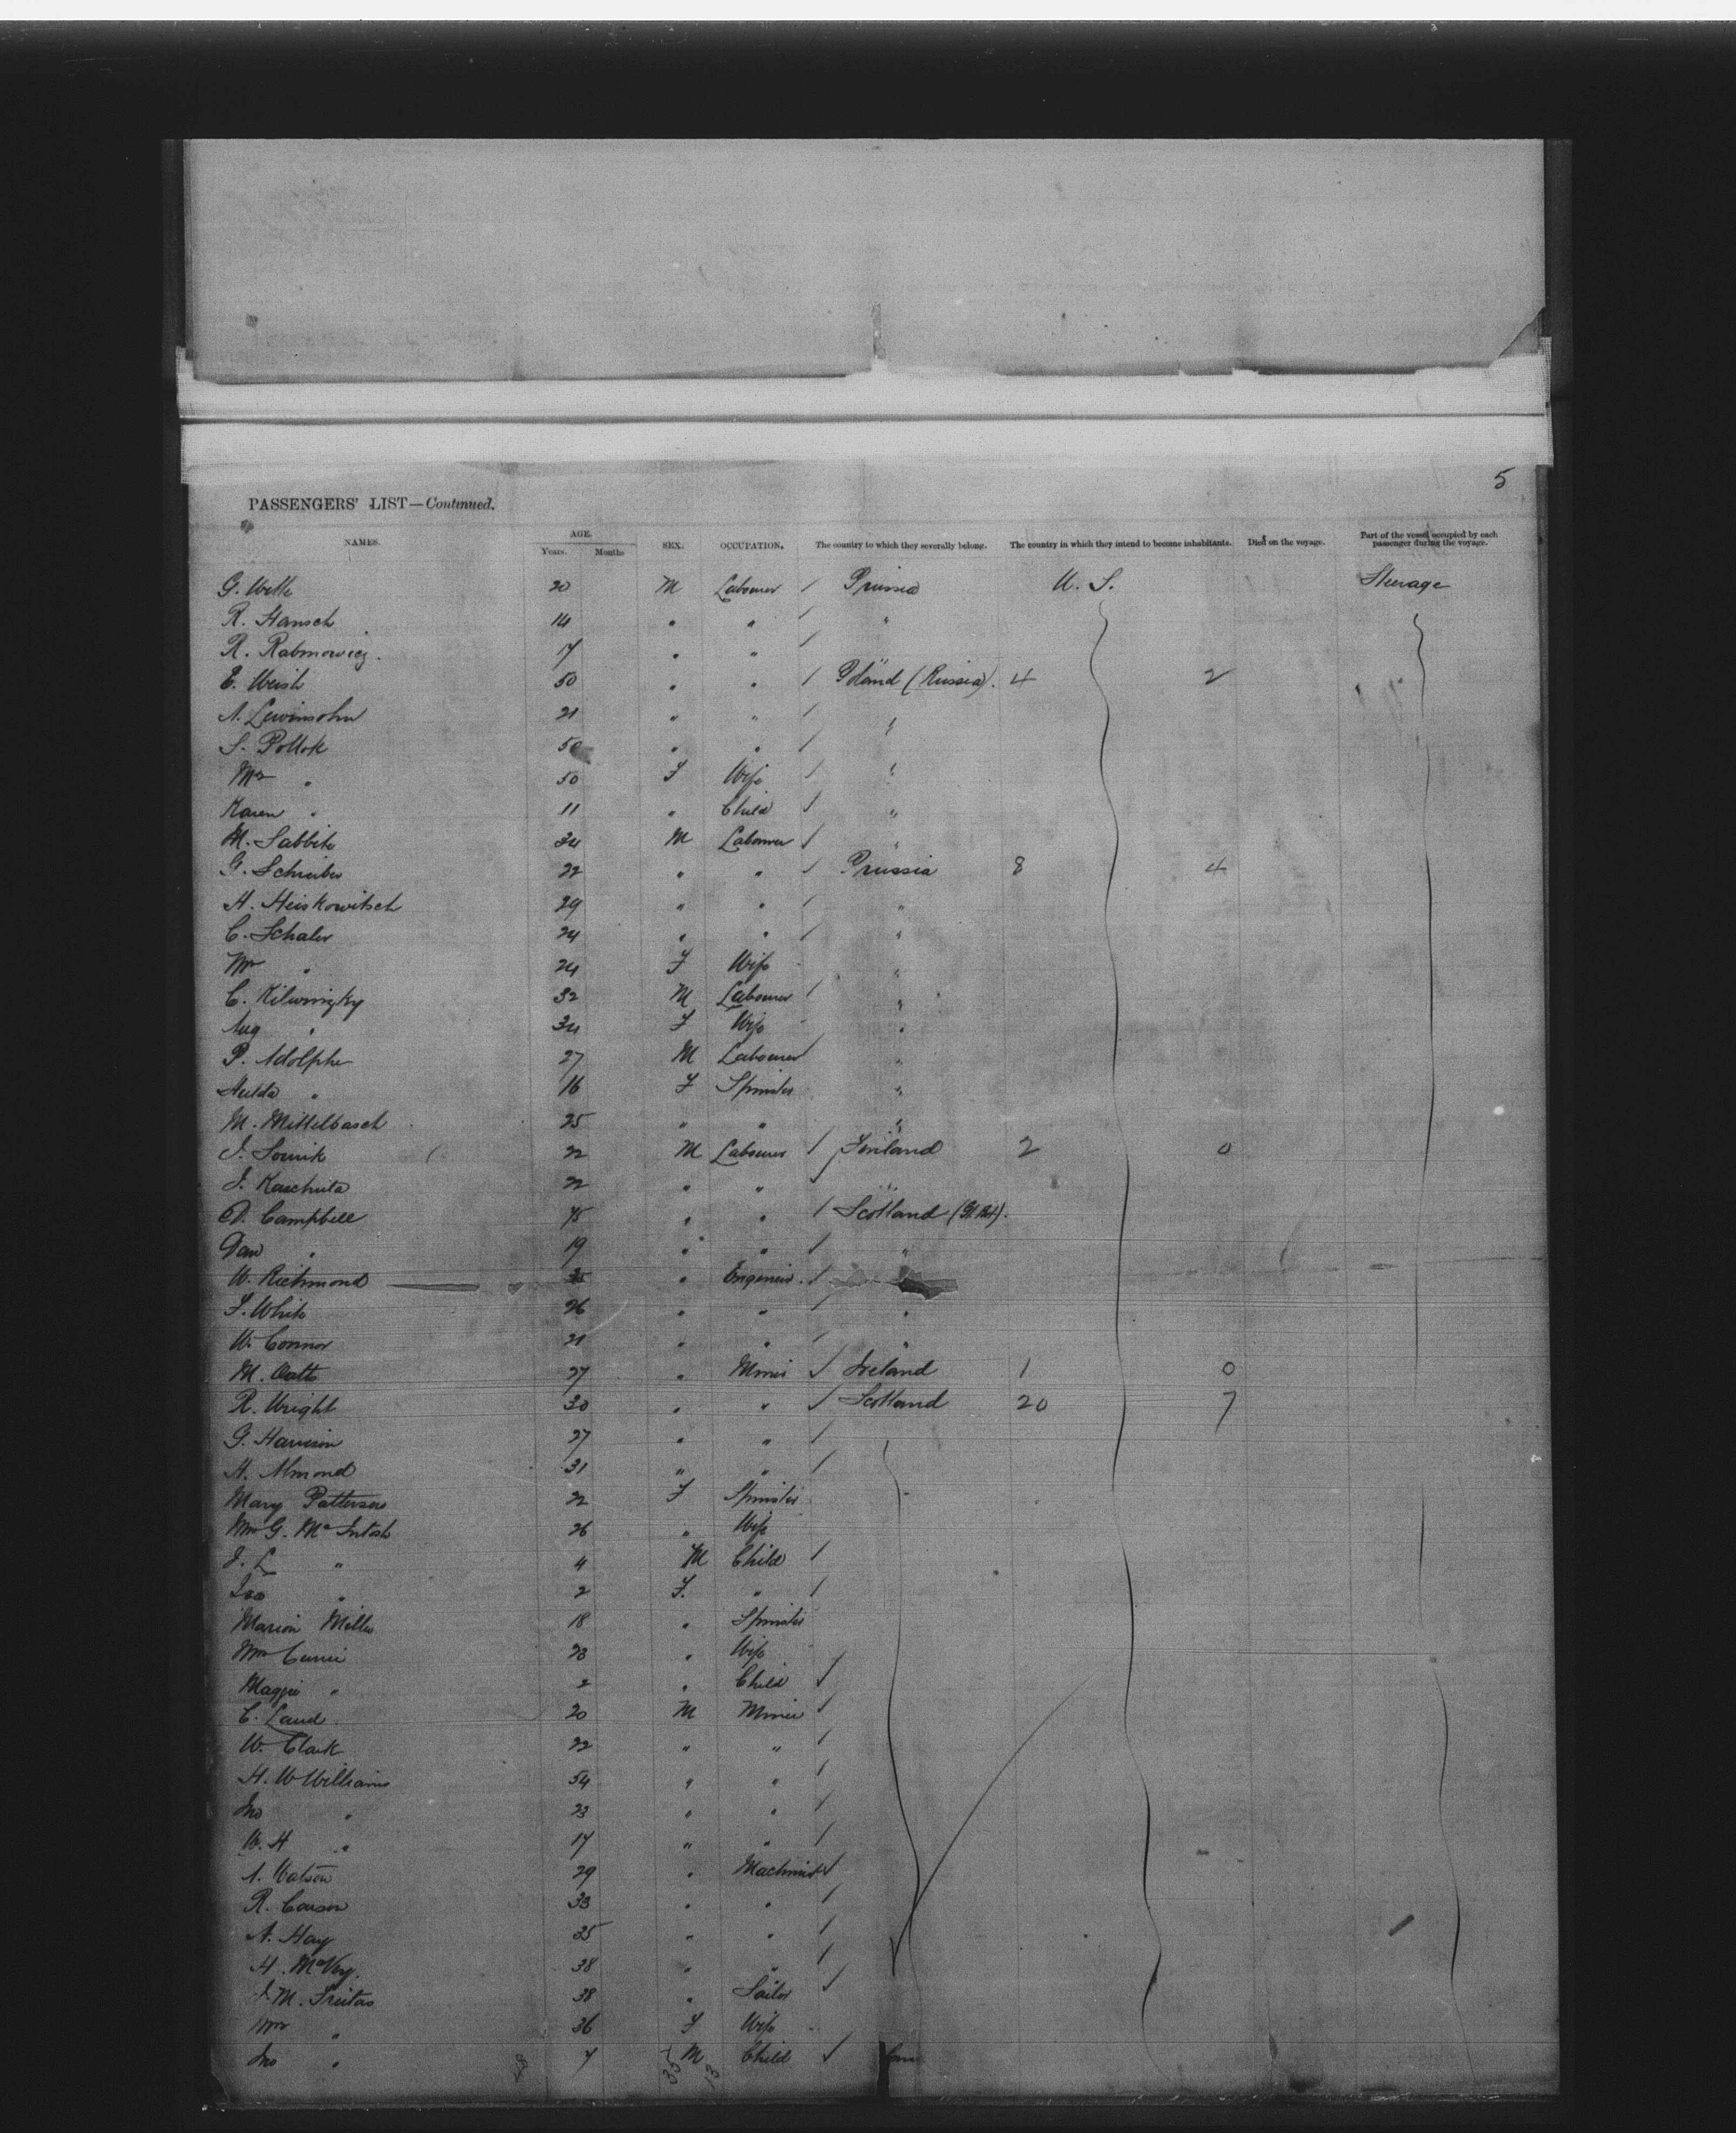 5
PASSENGERS' LIST—Continued.
NAMES. AGE. Years. Months SEX. OCCUPATION. The country to which they severally belong. The country in which they intend to become inhabitants. Died on the voyage. Part of the vessel occupied by each passenger during the voyage.
G. Witte 20 M Labourer / Prussia U. S. Steerage
R. Hansch 14 " " / "
R. Rabinowicz. 17 " " /
E. Weish 50 " " / Poland (Russia). 4 2
A. Lewinsohn 21 " " / "
S. Pollok 50 " " /
Mrs " 50 F Wife / "
Karen " 11 " Child / "
M. Sabbite 34 M Labourer /
G. Schreiber 22 " " / Prussia 8 4
H. Heiskowitsch 29 " " / "
C. Schaler 24 " " / "
Mrs " 24 F Wife "
C. Kilwinzky 32 M Labourer / "
Aug " 34 F Wife "
P. Adolphe 27 M Labourer / "
Hulda " 16 F Spinster "
M. Mittelbasch 25 " " "
J. Somik 22 M Labourer / Finland 2 0
J. Kaschuta 22 " " / "
D. Campbell 45 " " / Scotland (Gt. Brit).
Dan " 19 " " / "
W. Richmond 35 " Engineer. /
F. White 26 " " / "
W. Connor 21 " " / "
M. Oatts 27 " Miner / Ireland 1 0
R. Wright 30 " " / Scotland 20 7
G. Harrison 27 " " /
H. Almond 31 " " /
Mary Patterson 22 F Spinster
Mrs G. McIntosh 26 " Wife
J. L " 4 M Child /
Isa " 2 F. " /
Marion Miller 18 " Spinster
Mrs Currie 23 " Wife
Maggie " 2 " Child /
C. Laud 20 M Miner /
W. Clark 22 " " /
H. W Williams 54 " " /
Jno " 23 " " /
W. H " 17 " " /
A. Watson 29 " Machinist /
R. Carson 33 " " /
A. Hay 35 " " /
H. McVey. 38 " " /
J. M. Freitas 38 " Sailor /
Mrs " 36 F Wife
Jno " 7 M Child /
35 13